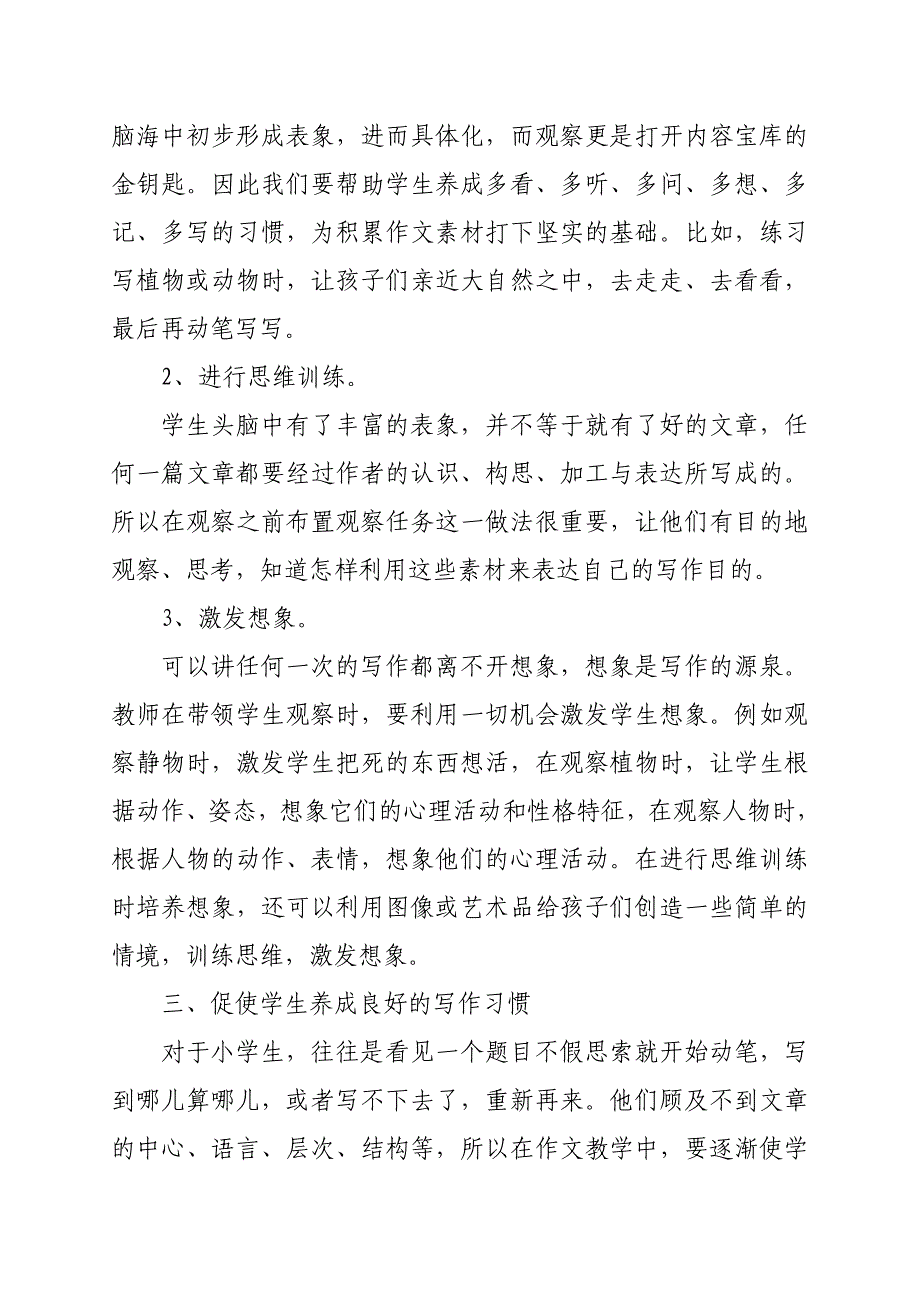 脑海中初步形成表象，进而具体化，而观察更是打开内容宝库的
金钥匙。因此我们要帮助学生养成多看、多听、多问、多想、多
记、多写的习惯，为积累作文素材打下坚实的基础。比如，练习
写植物或动物时，让孩子们亲近大自然之中，去走走、去看看，
最后再动笔写写。
2、进行思维训练。
学生头脑中有了丰富的表象，并不等于就有了好的文章，任
何一篇文章都要经过作者的认识、构思、加工与表达所写成的。
所以在观察之前布置观察任务这一做法很重要，让他们有目的地
观察、思考，知道怎样利用这些素材来表达自己的写作目的。
3、激发想象。
可以讲任何一次的写作都离不开想象，想象是写作的源泉。
教师在带领学生观察时，要利用一切机会激发学生想象。例如观
察静物时，激发学生把死的东西想活，在观察植物时，让学生根
据动作、姿态，想象它们的心理活动和性格特征，在观察人物时，
根据人物的动作、表情，想象他们的心理活动。在进行思维训练
时培养想象，还可以利用图像或艺术品给孩子们创造一些简单的
情境，训练思维，激发想象。
三、促使学生养成良好的写作习惯
对于小学生，往往是看见一个题目不假思索就开始动笔，写
到哪儿算哪儿，或者写不下去了，重新再来。他们顾及不到文章
的中心、语言、层次、结构等，所以在作文教学中，要逐渐使学